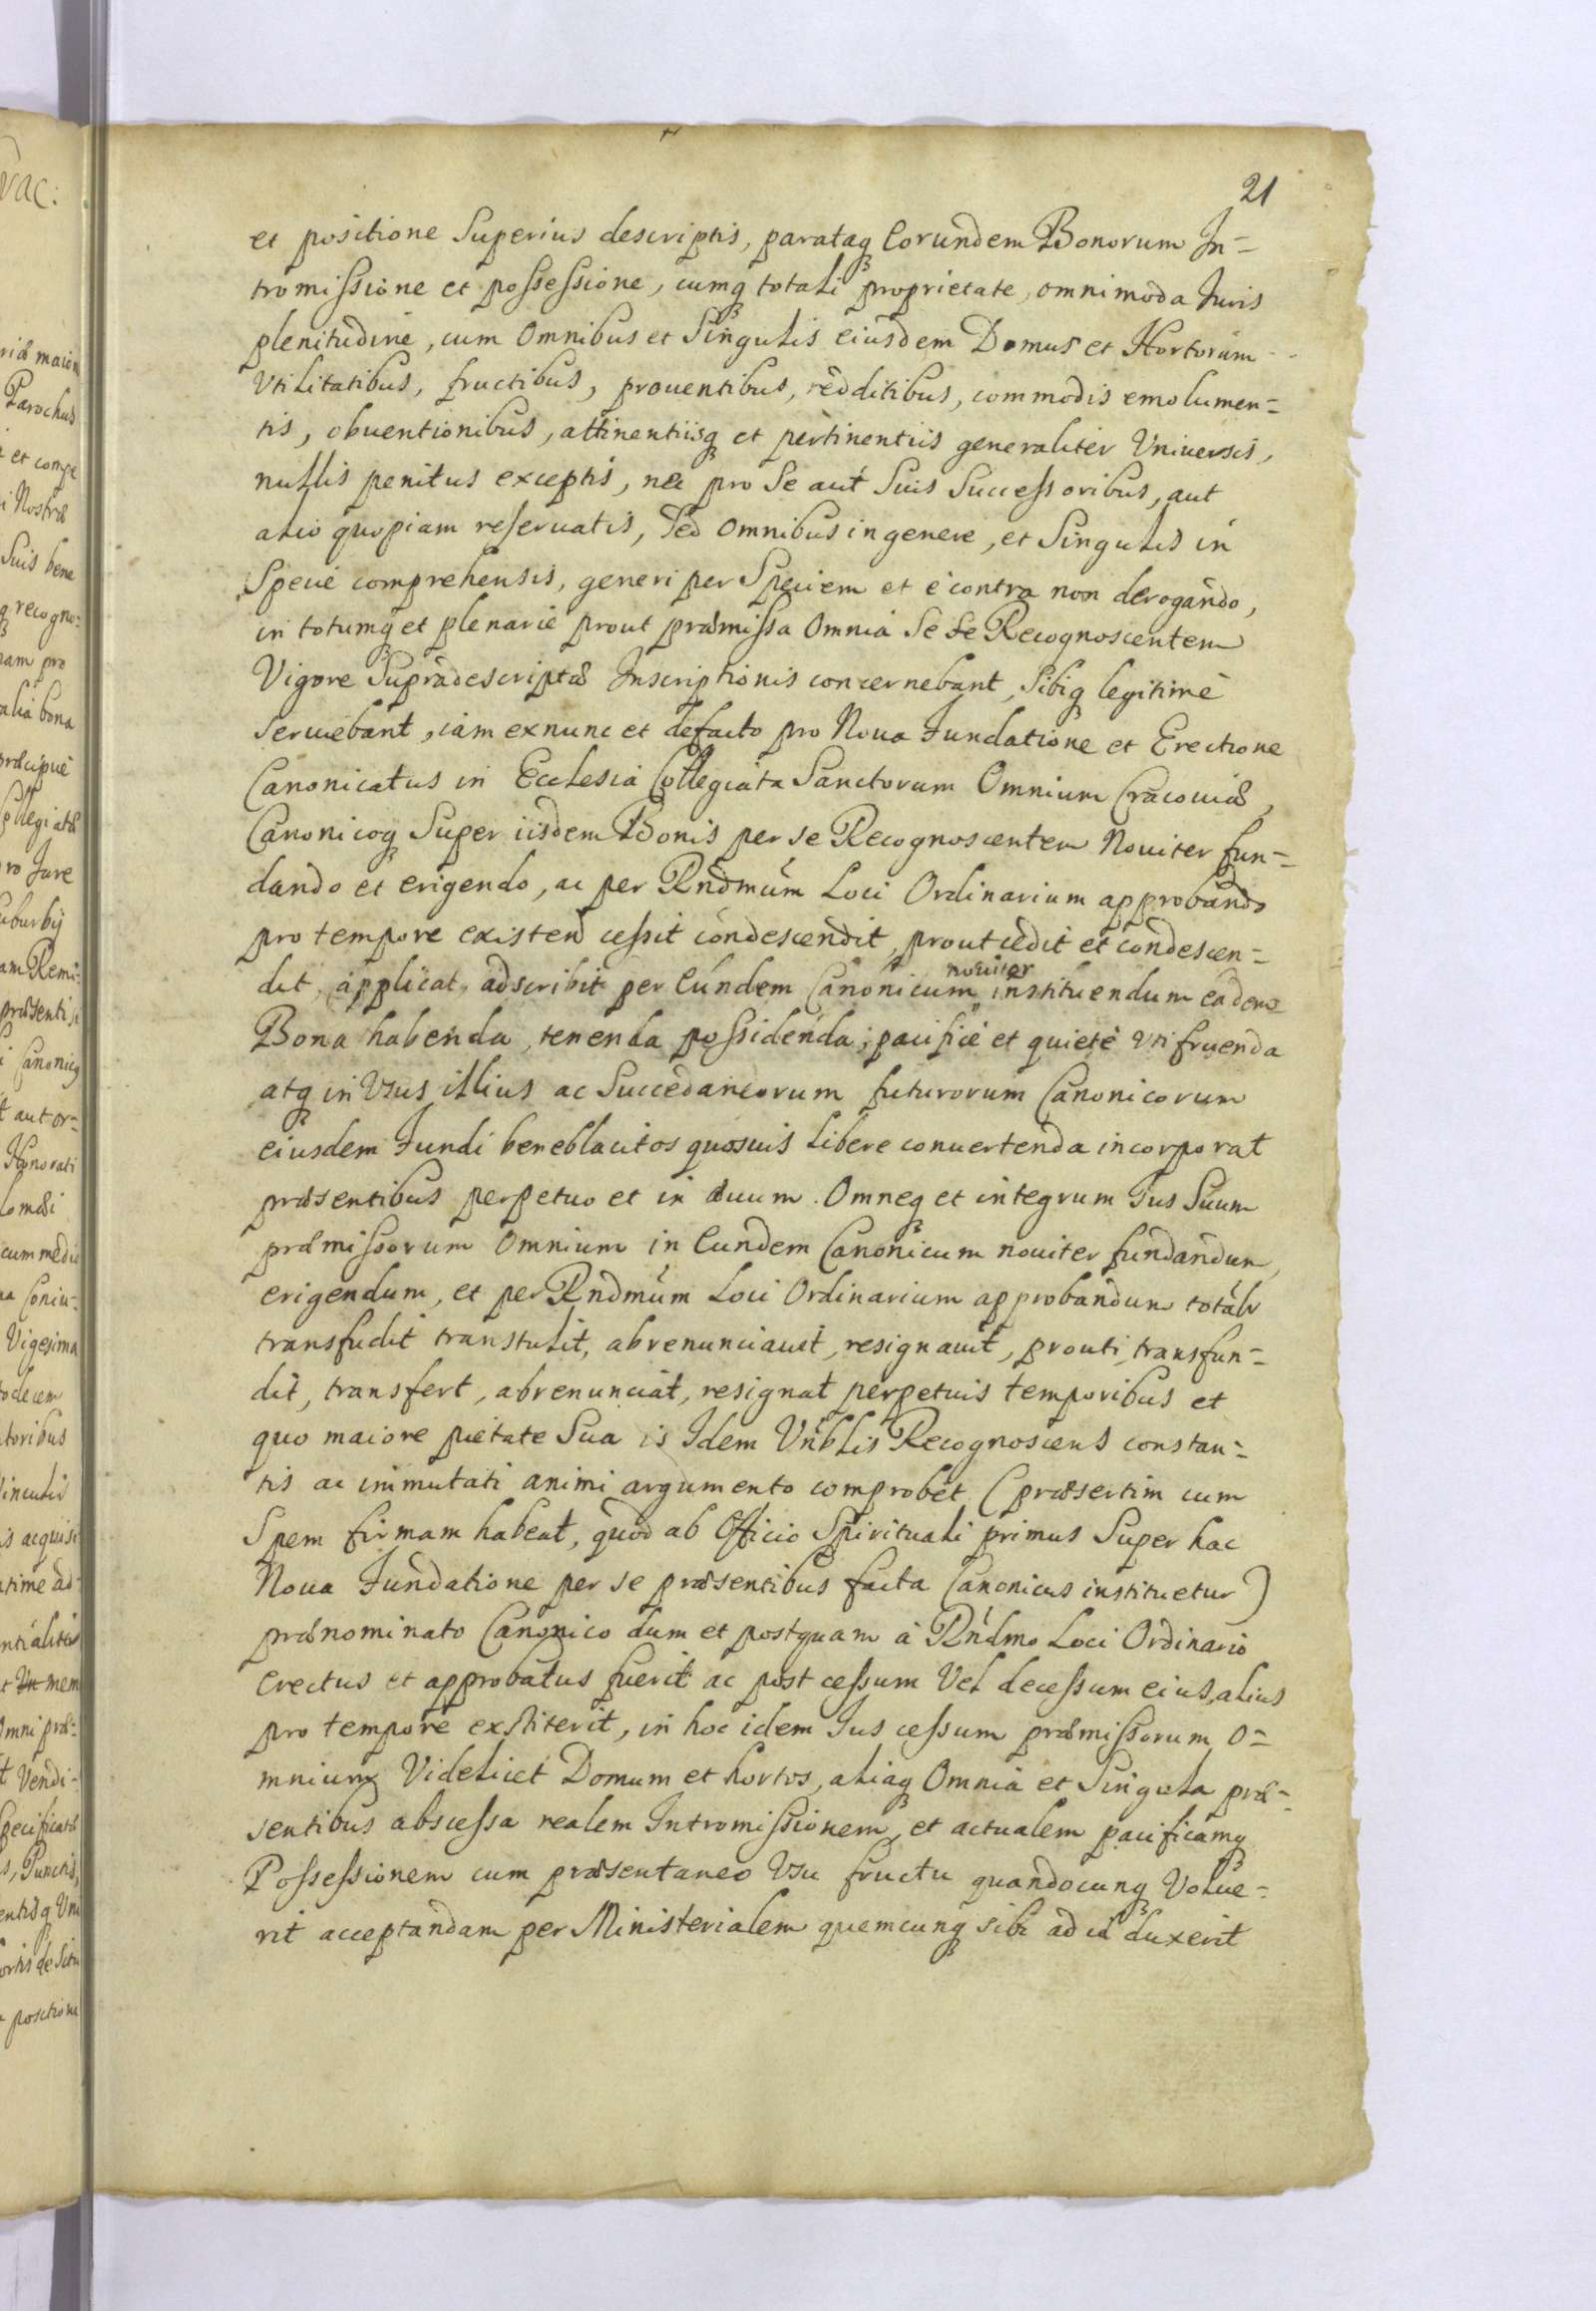 21
et positione Superius descriptis, parataq3 Eorundem Bonorum In=
tromissione et possessione, cumq3 totali proprietate, omnimoda Iuris
plenitudine, cum Omnibus et Singulis eiusdem Domus et Hortorum
Vtilitatibus, fructibus, prouentibus, redditibus, commodis emolumen=
tis, obuentionibus, attinentiisq3 et pertinentiis generaliter Vniuersis,
nullis penitus exceptis, nec pro Se aut Suis Successoribus, aut
alio quopiam reseruatis, Sed Omnibus in genere, et Singulis in
Specie comprehensis, generi per Speciem et è contra non derogando,
in totumq3 et plenarie prout præmissa Omnia Se se Recognoscentem
Vigore Supradescriptæ Inscriptionis concernebant, Sibiq3 legitimè
seruiebant, iam exnunc et defacto pro Noua Fundatione et Erectione
Canonicatus in Ecclesia Collegiata Sanctorum Omnium Cracouiæ,
Canonicoq3 Super iisdem Bonis per se Recognoscentem Nouiter fun=
dando et erigendo, ac per Rndmum Loci Ordinarium approbando
pro tempore existen cessit condescendit, prout cedit et condescen=
dit, applicat, adscribit per Eundem Canonicum nouiter instituendum eadem
Bona habenda, tenenda possidenda, pacifice et quietè vti fruenda
atq3 in Vsus illius ac Succedaneorum futurorum Canonicorum
eiusdem Fundi beneblacitos quosuis libere conuertenda incorporat
præsentibus perpetuo et in æuum. Omneq3 et integrum Ius Suum
præmissorum Omnium in Eundem Canonicum nouiter fundandum,
erigendum, et per Rndmum Loci Ordinarium approbandum totalr
transfudit transtulit, abrenunciauit, resignauit, prouti, transfun=
dit, transfert, abrenunciat, resignat perpetuis temporibus et
quo maiore pietate Sua is Idem Vnblis Recognoscens constan=
tis ac inimutati animi argumento comprobet (præsertim cum
Spem firmam habeat, quod ab Officio Spirituali primus Super hac
Noua Fundatione per se præsentibus facta Canonicus instituetur)
prænominato Canonico dum et postquam à Rndmo Loci Ordinario
erectus et approbatus fuerit ac post cessum Vel decessum eius, alius
pro tempore exstiterit, in hoc idem Ius cessum præmissorum O=
mnium Videlicet Domum et hortos, aliaq3 Omnia et Singula præ=
sentibus abscessa realem Intromissionem, et actualem pacificamq3
Possessionem cum præsentaneo Vsu fructu quandocunq3 Volue=
rit acceptandam per Ministerialem quemcunq3 sibi ad id duxerit